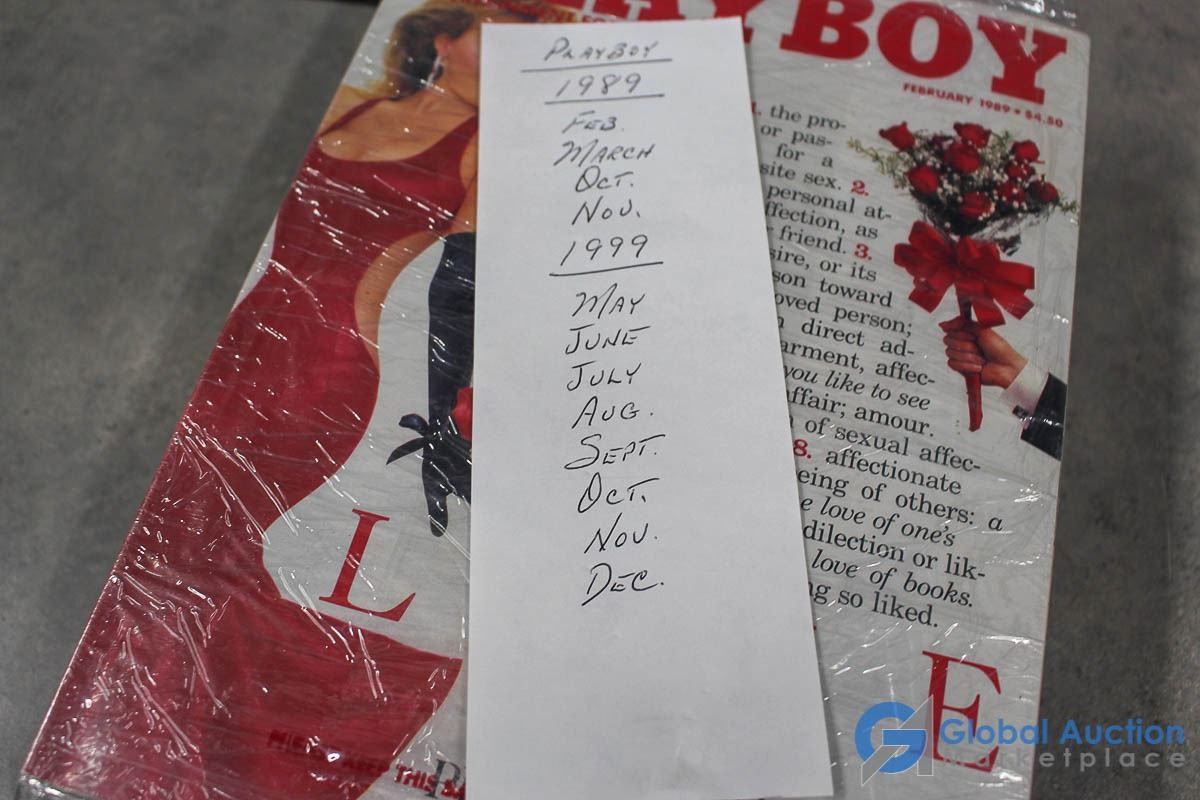 AYBOY
FEBRUARY 1989 • $4.50
PLAYBOY
1989
FEB.
MARCH
OCT.
NOV.
1999
MAY
JUNE
JULY
AUG.
SEPT.
OCT.
NOV.
DEC.
1. the pro-
or pas-
for a
site sex. 2.
personal at-
ffection, as
friend. 3.
sire, or its
son toward
oved person;
direct ad-
arment, affec-
you like to see
ffair; amour.
of sexual affec-
8. affectionate
eing of others: a
e love of one's
dilection or lik-
love of books.
ng so liked.
L
E
THIS
Global Auction
Marketplace